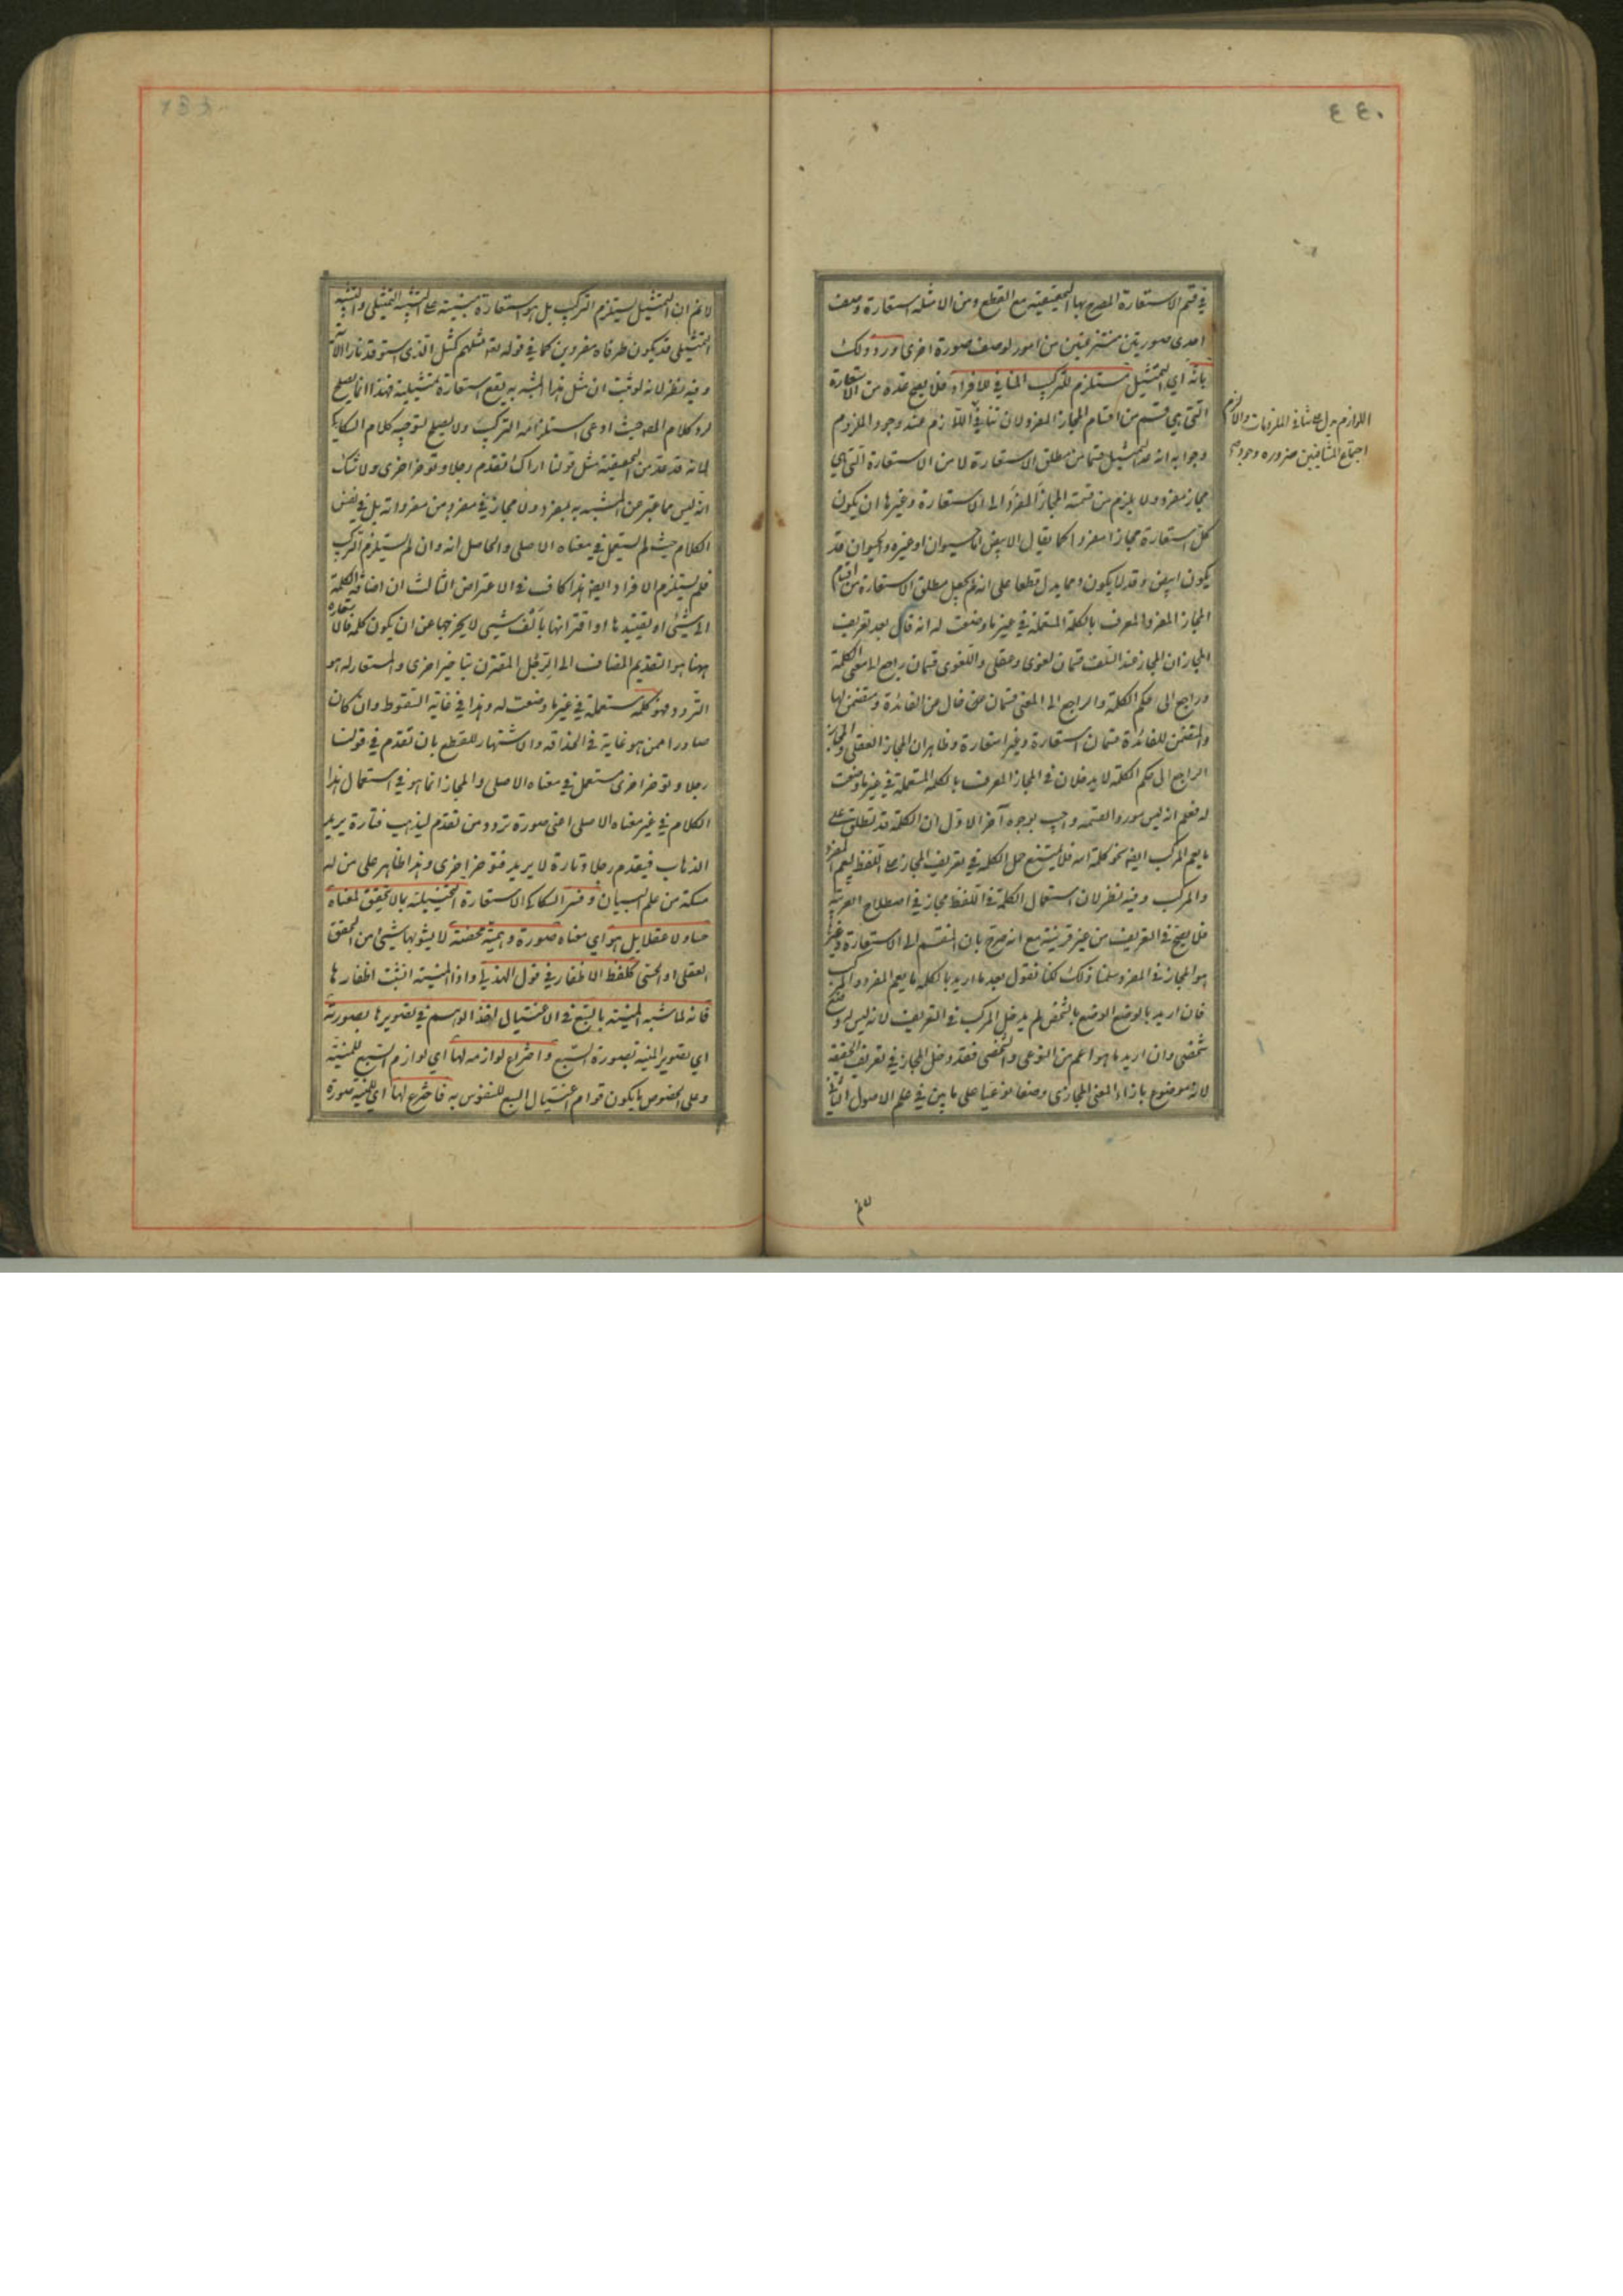 ٤٤٠
في قسم الاستعارة المصرح بها التحقيقية مع القطع ومن الامثلة استعارة وصف
احدى صورتين منتزعتين من امور لوصف صورة اخرى ورد ذلك
بانه اي التمثيل مستلزم للتركيب المنافي للافراد فلا يصح عده من الاستعارة
التي هي قسم من اقسام المجاز المفرد لان تنافي اللوازم عند وجود الملزوم
وجوابه انه عد التمثيل قسما من مطلق الاستعارة لا من الاستعارة التي هي
مجاز مفرد ولا يلزم من قسمة المجاز المفرد الى الاستعارة وغيرها ان يكون
كل استعارة مجازا مفردا كما يقال الابيض اما حيوان او غيره والحيوان قد
يكون ابيض وقد لا يكون ومما يدل قطعا على انه لم يجعل مطلق الاستعارة من اقسام
المجاز المفرد المعرف بالكلمة المستعملة في غير ما وضعت له انه قال بعد تعريف
المجاز ان المجاز عند السلف قسمان لغوي وعقلي واللغوي قسمان راجع الى معنى الكلمة
وراجع الى حكم الكلمة والراجع الى المعنى قسمان خال من الفائدة ومتضمن لها
والمتضمن للفائدة قسمان استعارة وغير استعارة وظاهر ان المجاز العقلي والمجاز
الراجع الى حكم الكلمة لا يدخلان في المجاز المعرف بالكلمة المستعملة في غير ما وضعت
له فعلم انه ليس مورد القسمة واجيب بوجوه آخر الاول ان الكلمة قد تطلق على
ما يعم المركب ايضا نحو كلمة الله فلا يمتنع حمل الكلمة في تعريف المجاز على اللفظ ليعم المفرد
والمركب وفيه نظر لان استعمال الكلمة في اللفظ مجاز في اصطلاح العربية
فلا يصح في التعريف من غير قرينة مع انه صرح بان المنقسم الى الاستعارة وغيرها
هو المجاز في المفرد سلمنا ذلك لكنا نقول بعد ما اريد بالكلمة ما يعم المفرد والمركب
فان اريد بالوضع الوضع بالشخص لم يدخل المركب في التعريف لانه ليس له وضع
شخصي وان اريد ما هو اعم من النوعي والشخصي فقد دخل المجاز في تعريف الحقيقة
لانه موضوع بازاء المعنى المجازي وضعا نوعيا على ما بين في علم الاصول الثاني
اللوازم يدل على تنافي الملزومات والا لزم
اجتماع المتنافيين ضرورة وجود
لا نم ان التمثيل يستلزم التركيب بل هو استعارة مبنية على التشبيه التمثيلي والتشبيه
التمثيلي قد يكون طرفاه مفردين كما في قوله تعالى مثلهم كمثل الذي استوقد نارا الآية
وفيه نظر لانه لو ثبت ان مثل هذا المشبه به يقع استعارة تمثيلية فهذا انما يصلح
لرد كلام المص حيث ادعى استلزامه التركيب ولا يصلح لتوجيه كلام السكاكي
لانه قد عد من التحقيقية مثل قولنا اراك تقدم رجلا وتؤخر اخرى ولا شك
انه ليس مما عبر عن المشبه به بمفرد ولا مجاز في مفرد من مفرداته بل في نفس
الكلام حيث لم يستعمل في معناه الاصلي والحاصل انه وان لم يستلزم التركيب
فلم يستلزم الافراد ايضا وهذا كاف في الاعتراض الثالث ان اضافة الكلمة
الى شيء او تقييدها او اقترانها بالف شيء لا يخرجها عن ان يكون كلمة فالاستعارة
ههنا هو التقديم المضاف الى الرجل المقترن بتاخير اخرى والمستعار له هو
التردد فهو كلمة مستعملة في غير ما وضعت له وهذا في غاية السقوط وان كان
صادرا ممن هو غاية في الحذاقة والاشتهار للقطع بان تقدم في قولنا تقدم
رجلا وتؤخر اخرى مستعمل في معناه الاصلي والمجاز انما هو في استعمال هذا
الكلام في غير معناه الاصلي اعني صورة تردد من تقدم ليذهب فتارة يريد
الذهاب فيقدم رجلا وتارة لا يريد فيؤخر اخرى وهذا ظاهر على من له
مسكة من علم البيان وفسر السكاكي الاستعارة التخييلية بما لا تحقق لمعناه
حسا ولا عقلا بل هو اي معناه صورة وهمية محضة لا يشوبها شيء من التحقق
العقلي او الحسي كلفظ الاظفار في قول الهذلي واذا المنية انشبت اظفارها
فانه لما شبه المنية بالسبع في الاغتيال اخذ الوهم في تصويرها بصورته
اي تصوير المنية بصورة السبع واختراع لوازمه لها اي لوازم السبع للمنية
وعلى الخصوص ما يكون قوام اغتيال السبع للنفوس به فاخترع لها اي للمنية صورة